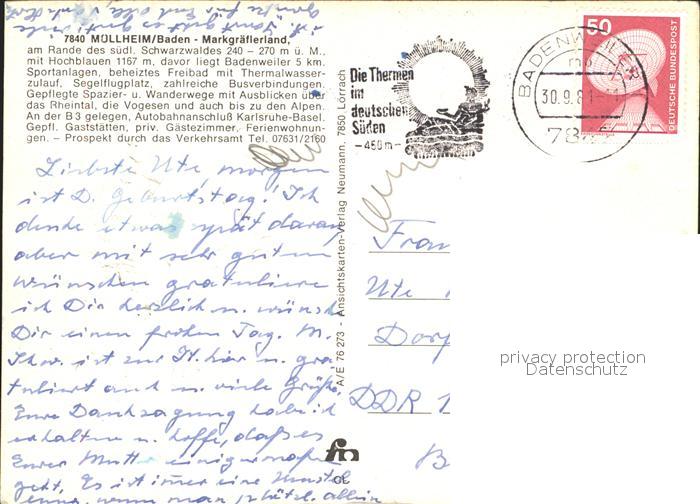 7840 MÜLLHEIM/Baden - Markgräflerland,
am Rande des südl. Schwarzwaldes 240 – 270 m ü. M.,
mit Hochblauen 1167 m, davor liegt Badenweiler 5 km.
Sportanlagen, beheiztes Freibad mit Thermalwasser-
zulauf, Segelflugplatz, zahlreiche Busverbindungen.
Gepflegte Spazier- u. Wanderwege mit Ausblicken über
das Rheintal, die Vogesen und auch bis zu den Alpen.
An der B 3 gelegen, Autobahnanschluß Karlsruhe-Basel.
Gepfl. Gaststätten, priv. Gästezimmer, Ferienwohnun-
gen. – Prospekt durch das Verkehrsamt Tel. 07631/2160
Liebste Ute, morgen
ist D. Geburtstag! Ich
denke etwas spät daran
aber mit sehr guten
Wünschen gratuliere
ich Dir herzlich u. wünsche
Dir einen frohen Tag. M.
ist zur Zt. hier u. gra
tuliert auch u. viele Grüße.
Eure Danksagung habe ich
erhalten u. hoffe, daß es
Eurer Mutter einigermaßen
geht. Es ist immer eine
wenn man plötzl. allein
A/E 76 273 - Ansichtskarten-Verlag Neumann, 7850 Lörrach
Die Thermen
im
deutschen
Süden
– 450 m –
BADENWEILER
30.9.81
784
50
DEUTSCHE BUNDESPOST
Frau
Ute
Dorf
DDR 1
B
privacy protection
Datenschutz